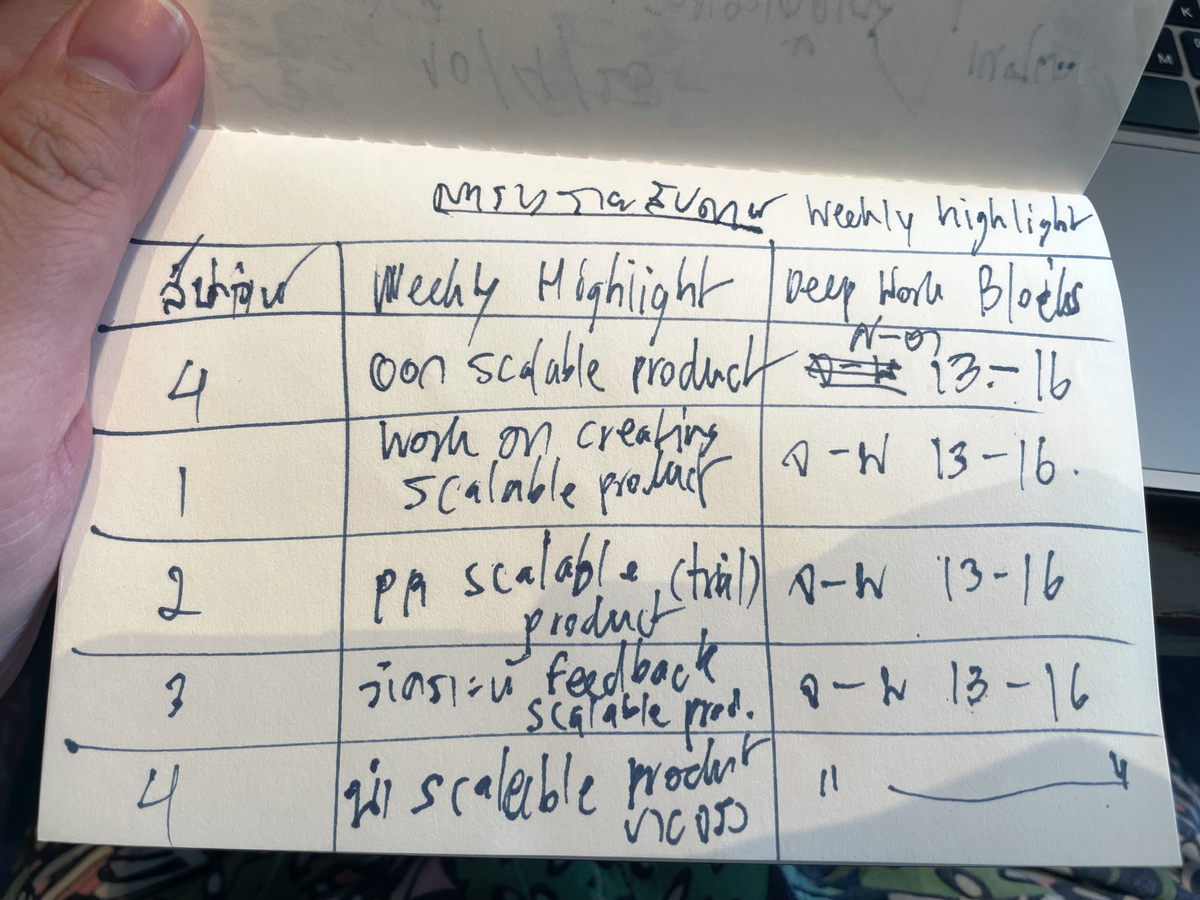 ตารางรายสัปดาห์ weekly highlight
สัปดาห์ Weekly Highlight Deep Work Blocks
4 ออก scalable product 13.-16
1 Work on creating
scalable product จ-พ 13-16.
2 scalable (trial)
product จ-พ 13-16
3 วิเคราะห์ feedback
scalable prod. จ-พ 13-16
4 scalable product
ขายจริง " "